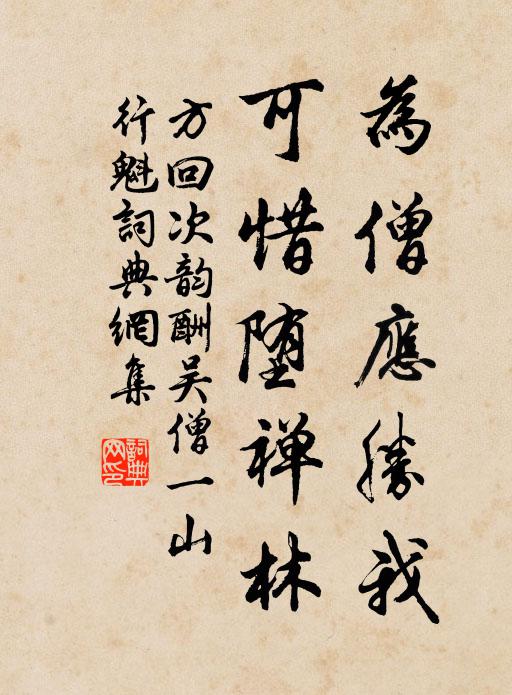 為僧應勝我
可惜堕禅林
方回次韵酬吴僧一山
行魁詞典網集
詞典网印